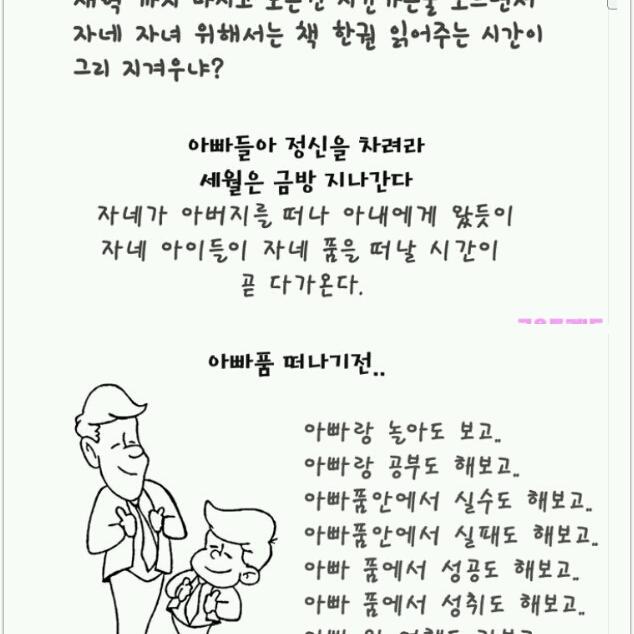 까지 마시고 시간가는줄 모르면서
자네 자녀 위해서는 책 한권 읽어주는 시간이
그리 지겨우냐?
아빠들아 정신을 차려라
세월은 금방 지나간다
자네가 아버지를 떠나 아내에게 왔듯이
자네 아이들이 자네 품을 떠날 시간이
곧 다가온다.
아빠품 떠나기전..
아빠랑 놀아도 보고..
아빠랑 공부도 해보고..
아빠품안에서 실수도 해보고..
아빠품안에서 실패도 해보고..
아빠 품에서 성공도 해보고..
아빠 품에서 성취도 해보고..